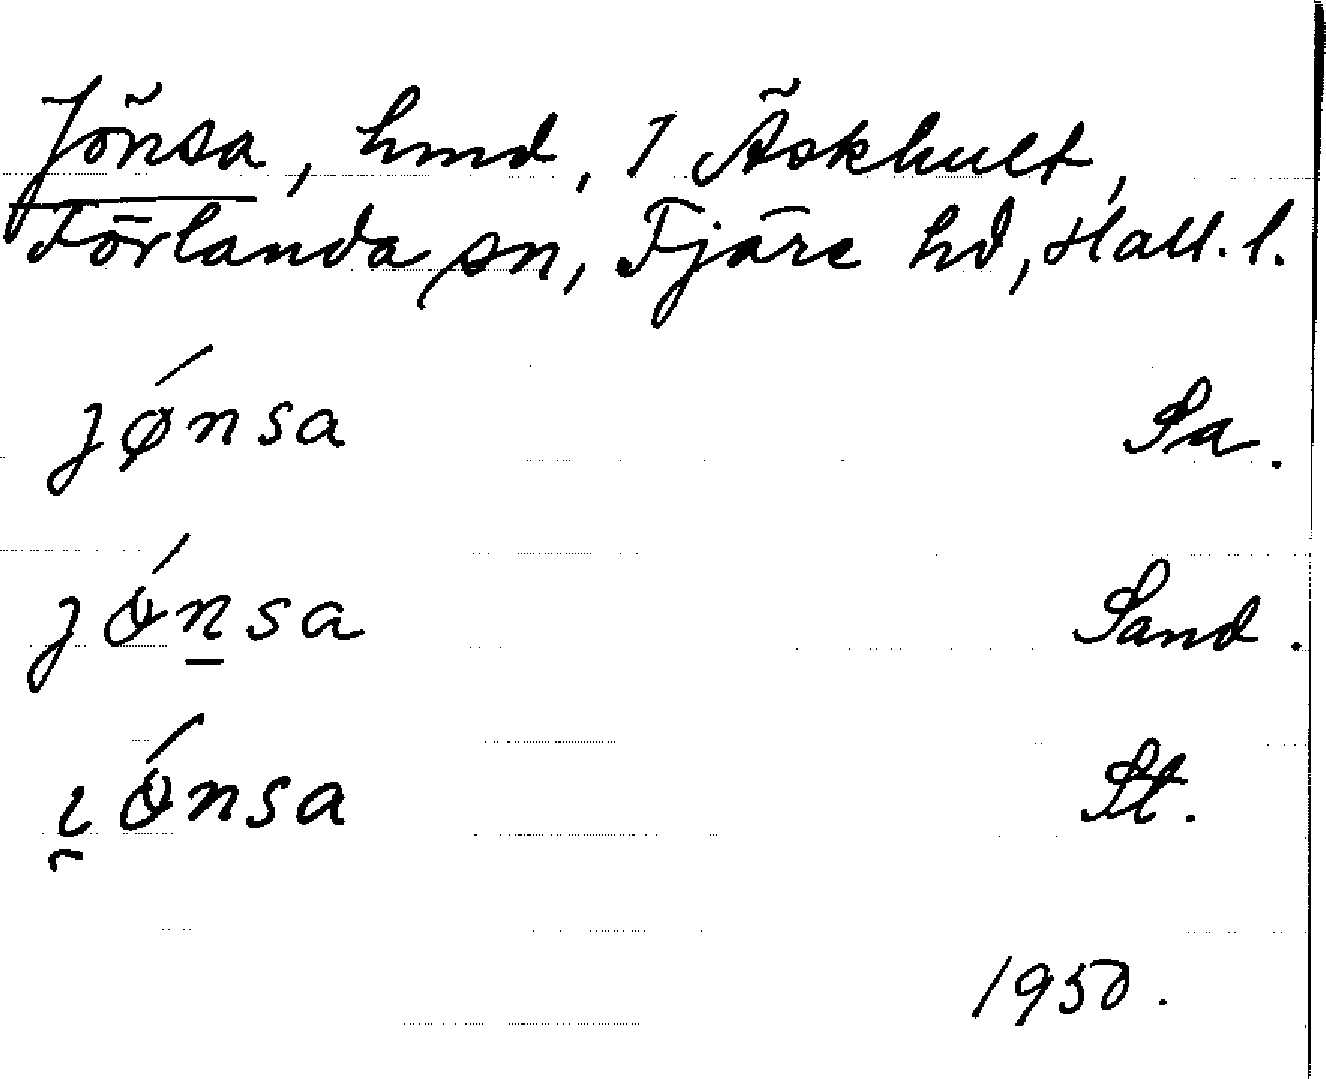 Jönsa, hmd, 1 Äskhult,
Förlanda sn, Fjäre hd, Hall. l.
jǿnsa Sa.
jǿn̲sa Sand.
ı̯ǿnsa St.
1950.